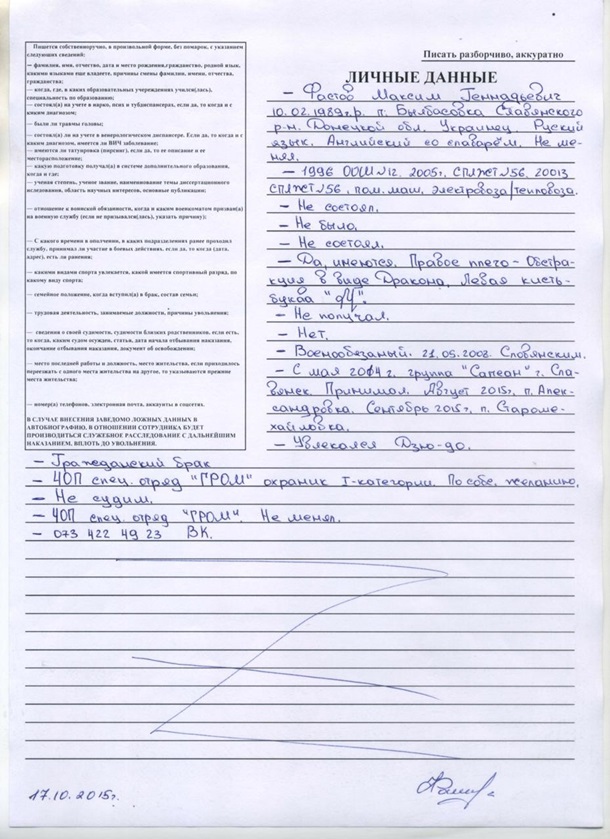 Пишется собственноручно, в произвольной форме, без помарок, с указанием
следующих сведений:
— фамилия, имя, отчество, дата и место рождения,гражданство, родной язык,
какими языками еще владеете, причины смены фамилии, имени, отчества,
гражданства;
— когда, где, в каких образовательных учреждениях учился(лась),
специальность по образованию;
— состоял(а) на учете в нарко, псих и тубдиспансерах, если да, то когда и с
каким диагнозом;
— были ли травмы головы;
— состоял(а) ли на учете в венерологическом диспансере. Если да, то когда и с
каким диагнозом, имеется ли ВИЧ заболевание;
— имеются ли татуировки (пирсинг), если да, то ее описание и ее
месторасположение;
— какую подготовку получал(а) в системе дополнительного образования,
когда и где;
— ученая степень, ученое звание, наименование темы диссертационного
исследования, область научных интересов, основные публикации;
— отношение к воинской обязанности, когда и каким военкоматом призван(а)
на военную службу (если не призывался(лась), указать причину);
— С какого времени в ополчении, в каких подразделениях ранее проходил
службу, принимал ли участие в боевых действиях, если да, то когда (дата,
адрес), есть ли ранения;
— какими видами спорта увлекается, какой имеется спортивный разряд, по
какому виду спорта;
— семейное положение, когда вступил(а) в брак, состав семьи;
— трудовая деятельность, занимаемые должности, причины увольнения;
— сведения о своей судимости, судимости близких родственников, если есть,
то когда, каким судом осужден, статья, дата начала отбывания наказания,
окончание отбывания наказания, документ об освобождении;
— место последней работы и должность, место жительства, если приходилось
переезжать с одного места жительства на другое, то указывается прежние
места жительства;
— номер(а) телефонов, электронная почта, аккаунты в соцсетях.
В СЛУЧАЕ ВНЕСЕНИЯ ЗАВЕДОМО ЛОЖНЫХ ДАННЫХ В
АВТОБИОГРАФИЮ, В ОТНОШЕНИИ СОТРУДНИКА БУДЕТ
ПРОИЗВОДИТЬСЯ СЛУЖЕБНОЕ РАССЛЕДОВАНИЕ С ДАЛЬНЕЙШИМ
НАКАЗАНИЕМ, ВПЛОТЬ ДО УВОЛЬНЕНИЯ.
Писать разборчиво, аккуратно
ЛИЧНЫЕ ДАННЫЕ
— Фастов Максим Геннадьевич
10.02.1989г.р. п. Былбасовка Славянского
р-н. Донецкой обл. Украинец. Руский
язытк. Английский со славарём. Не ме-
нял.
— 1996 ООШ №12. 2005г. СПЛЖТ №56. 20013
СПЛЖТ №56, пом. маш. электровоза/тепловоза.
— Не состоял.
— Не было.
— Не состоял.
— Да, имеются. Правое плечо – Обстра-
кция в виде Дракона. Левая кисть-
буква
— Не получал.
— Нет.
— Военообезаный. 21.05.2008. Славянским.
— С мая 2014г. группа "Сапсан" г. Сла-
вянск. Принимал. Август 2015г. п. Алек-
сандровка. Сентябрь 2015г. п. Староме-
хайловка.
— Увлекался Дзю-до.
— Гражданский брак
— ЧОП спец. отряд "ГРОМ" охраник I-категории. По собе. желанию.
— Не судим.
— ЧОП спец. отряд "ГРОМ". Не менял.
— 073 422 49 23 ВК.
17.10.2015г.